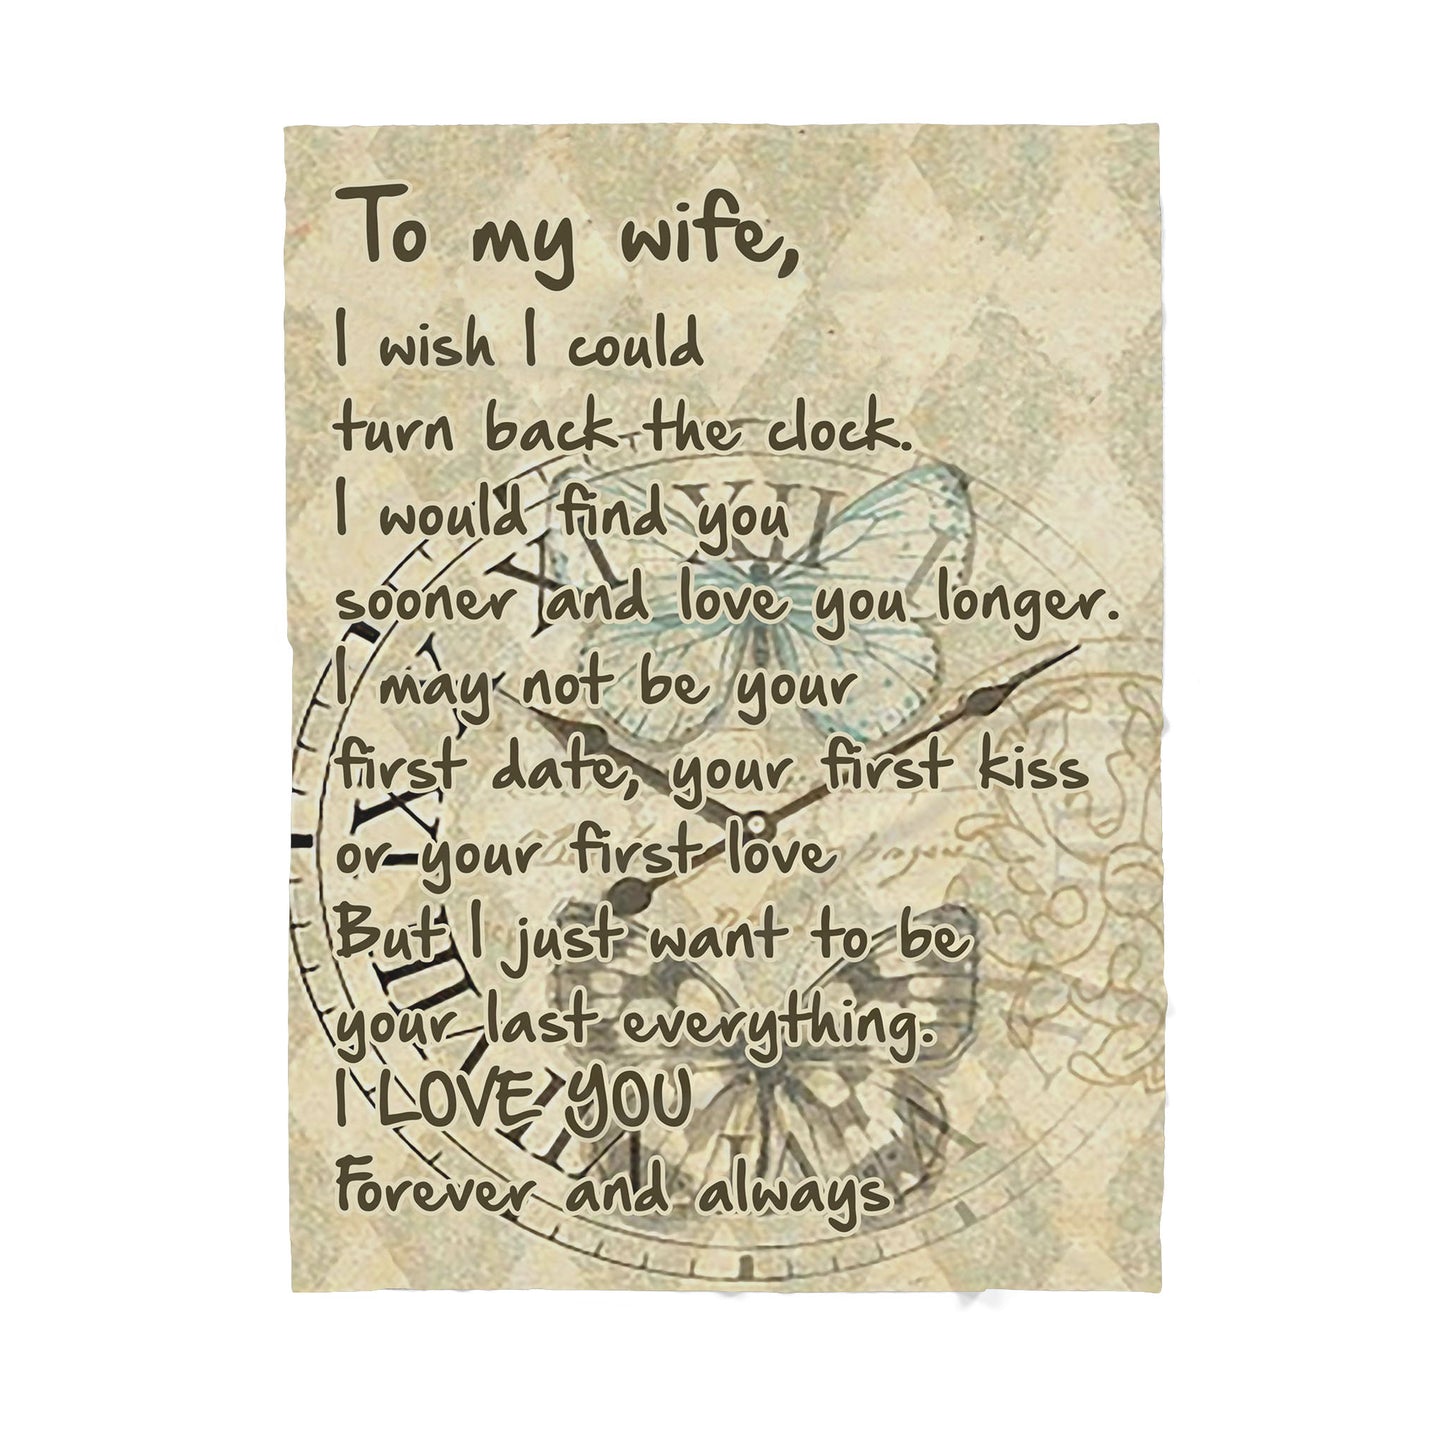 To my wife,
I wish I could
turn back the clock.
I would find you
sooner and love you longer.
I may not be your
first date, your first kiss
or your first love
But I just want to be
your last everything.
I LOVE YOU
Forever and always
XII
XI
X
IX
VIII
VII
VI
V